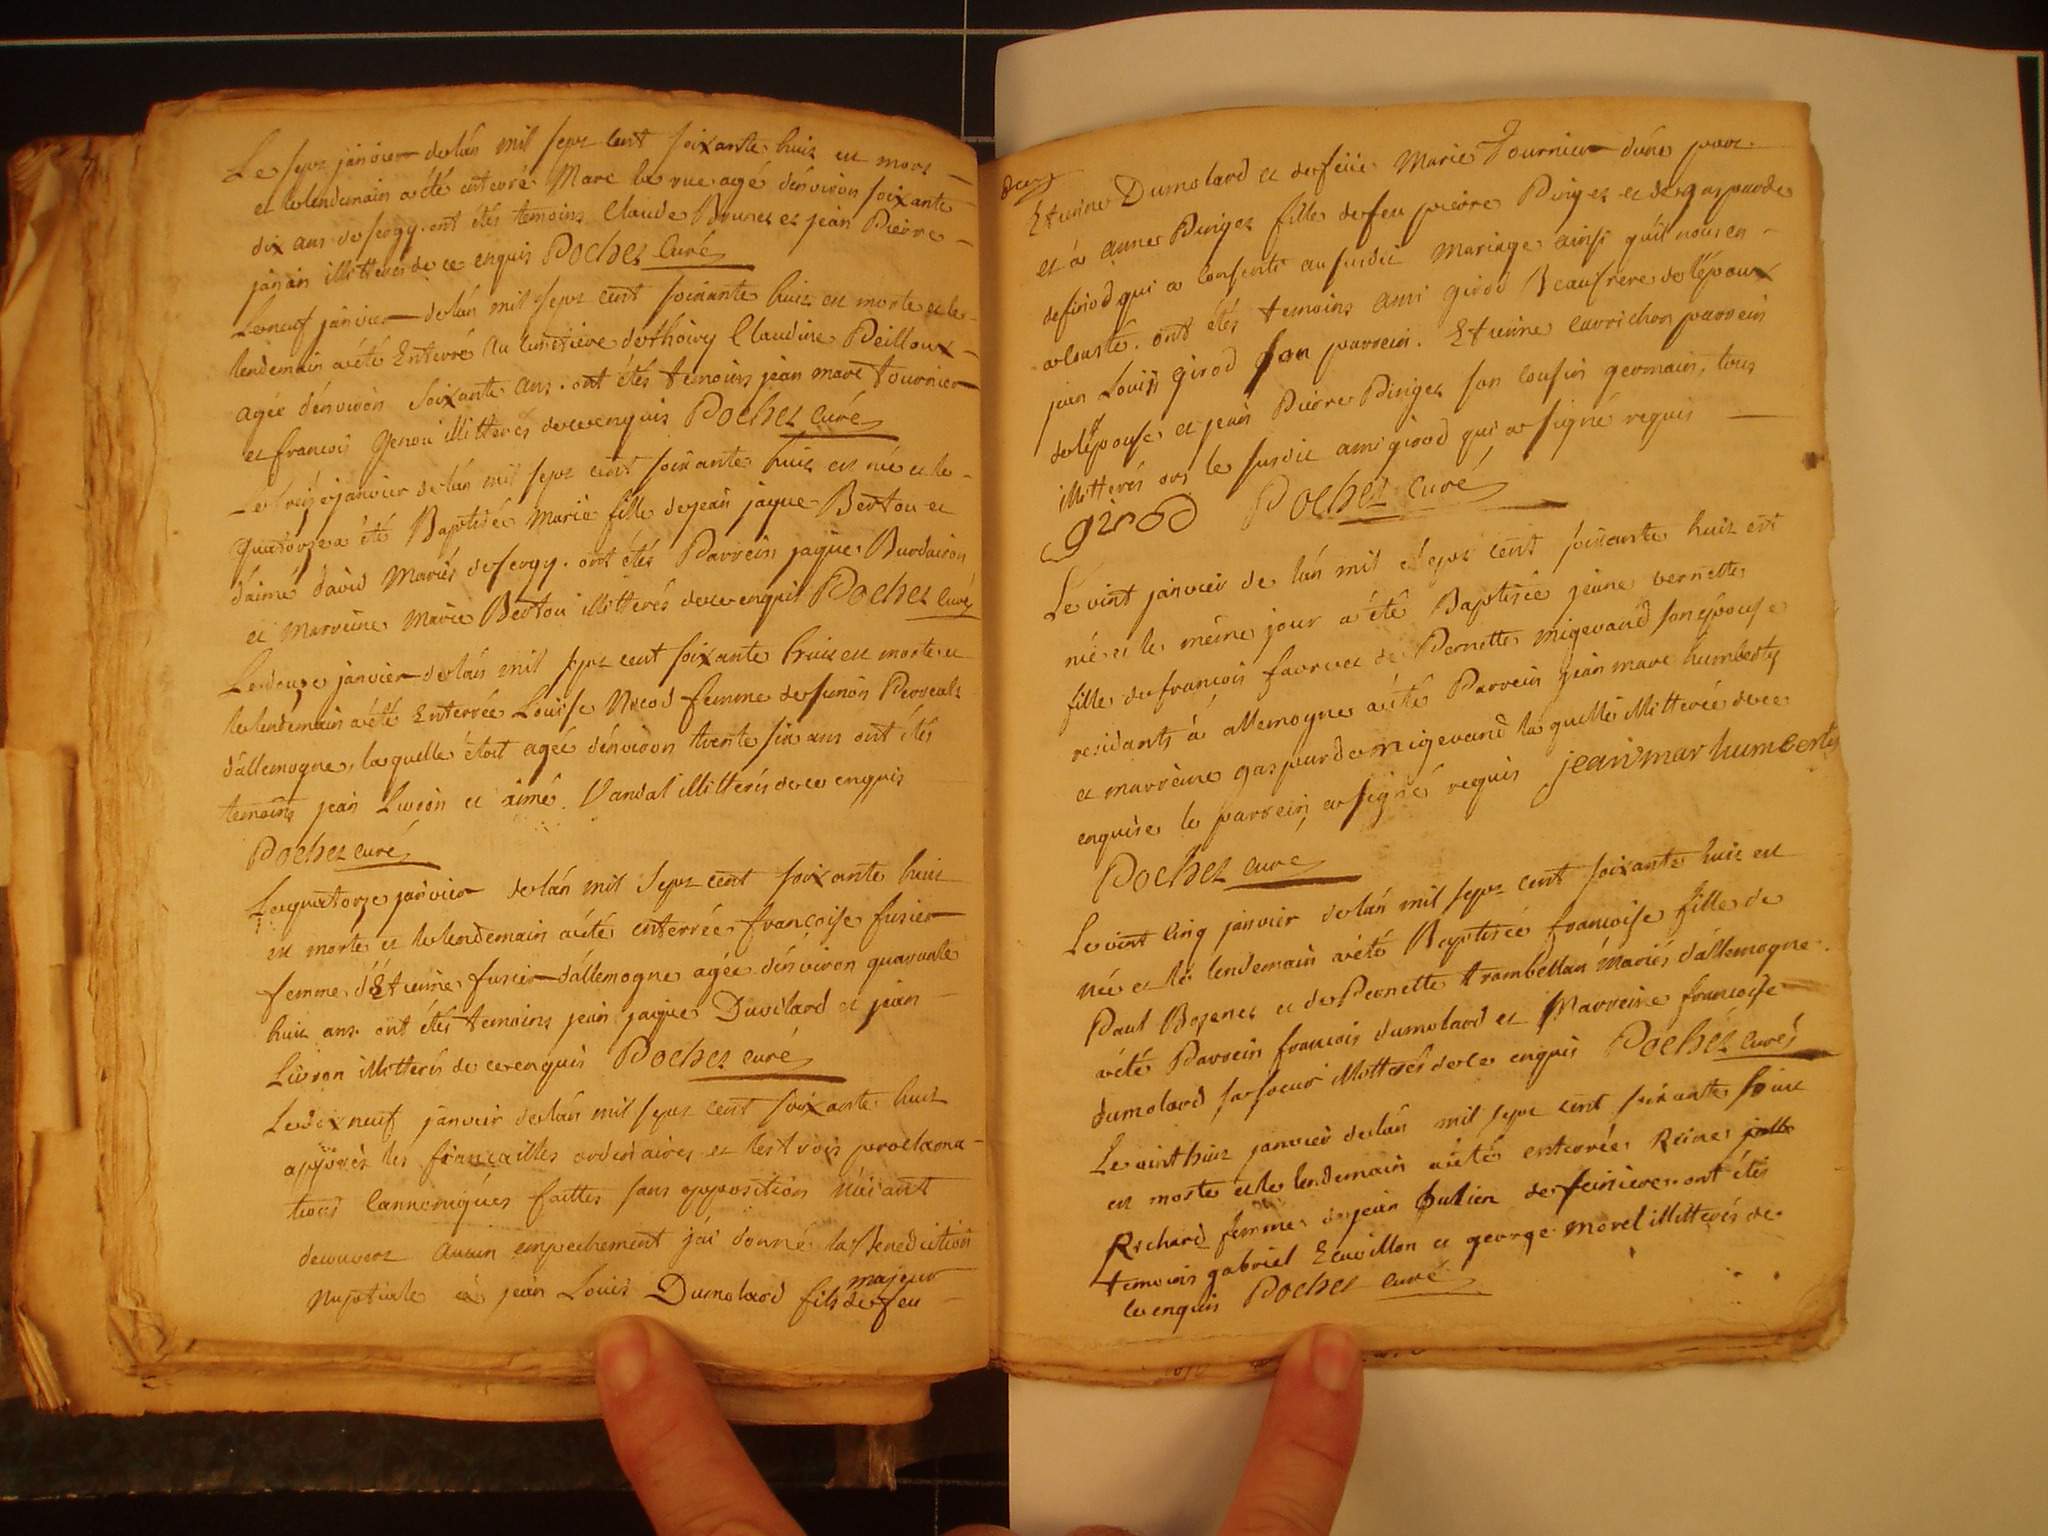 Le sept janvier de lán mil sept cent soixante huit est mort
et le lendemain a été enterré Marc la rue agé dénviron soixante
dix ans de sergy. ont étés temoins Claude Brunet et jean Pierre
janin illitterés de ce enquis Pochet Curé
Le neuf janvier de lán mil sept cent soixante huit est morte et le
lendemain a été Enterré au Cimetiere de thoiry Claudine Peilloux
agée dénviron soixante ans. ont étés temoins jean marc tournier
et francois Genou illitterés de ce enquis Pochet Curé
Le treize janvier de lán mil sept cent soixante huit est née et le
quatorze a été Baptisée Marie fille de jean jaque Bertou et
d'aimé david Mariés de sergy. ont étés Parrein jaque Burdairon
et Marreine Marie Bertou illitterés de ce enquis Pochet Curé
Le douze janvier de lán mil sept cent soixante huit est morte et
le lendemain a été Enterrée Louise Nicod femme de simon Perreal
dállemogne, laquelle étoit agée dénviron trente six ans ont étés
temoins jean Livron et aimé Vandal illitterés de ce enquis
Pochet curé
Le quatorze janvier de lán mil sept cent soixante huit
est morte et le lendemain a été enterrée francoise fusier
femme d'Etienne fusier dállemogne agée dénviron quarante
huit ans ont étés temoins jean jaque Duvilard et jean
Livron illitterés de ce enquis Pochet curé
Le dix neuf janvier de lán mil sept cent soixante huit
apprès les fiancailles ordinaires et les trois proclama-
tions Cannoniques faittes sans opposition n'aiant
decouvert aucun empechement j'ai donné la Benediction
majeur
Nuptiale à jean Louis Dumolard fils de feu
deux
Etienne Dumolard et de feüe Marie Tournier d'úne part.
et à anne Pinget fille de feu pierre Pinget et de gasparde
de finiod qui a consenti au susdit Mariage ainsi quil nous en
a consté. ont étés temoins ami girod Beaufrere de lépoux
jean Louis girod son parrein. Etienne Cavrichon parrein
de lépouse et jean Pierre Pinget son Cousin germain, tous
illitterés ors le susdit ami girod qui a signé requis
girod Pochet curé
Le vint janvier de lán mil sept cent soixante huit est
née et le méme jour a été Baptisée jeanne pernette
fille de francois favre et de Pernette migevand son épouse
residants à allemogne a été Parrein jean marc humberty
et marreine gasparde migevand laquelle illitterée de ce
enquise le parrein a signé requis jean mar humberty
Pochet curé
Le vint cinq janvier de lán mil sept cent soixante huit est
née et le lendemain a été Baptisée francoise fille de
Paul Bozenet et de Pernette trambellan Mariés dállemogne.
a été Parrein francois dumolard et Marreine francoise
dumolard sa soeur illitterés de ce enquis Pochet curé
Le vint huit janvier de lán mil sept cent soixante huit
est morte et le lendemain a été enterrée Reine
Richard femme de jean Julien de feiniere. ont étés
temoins gabriel Ecuvillon et george morel illitterés de
ce enquis Pochet curé